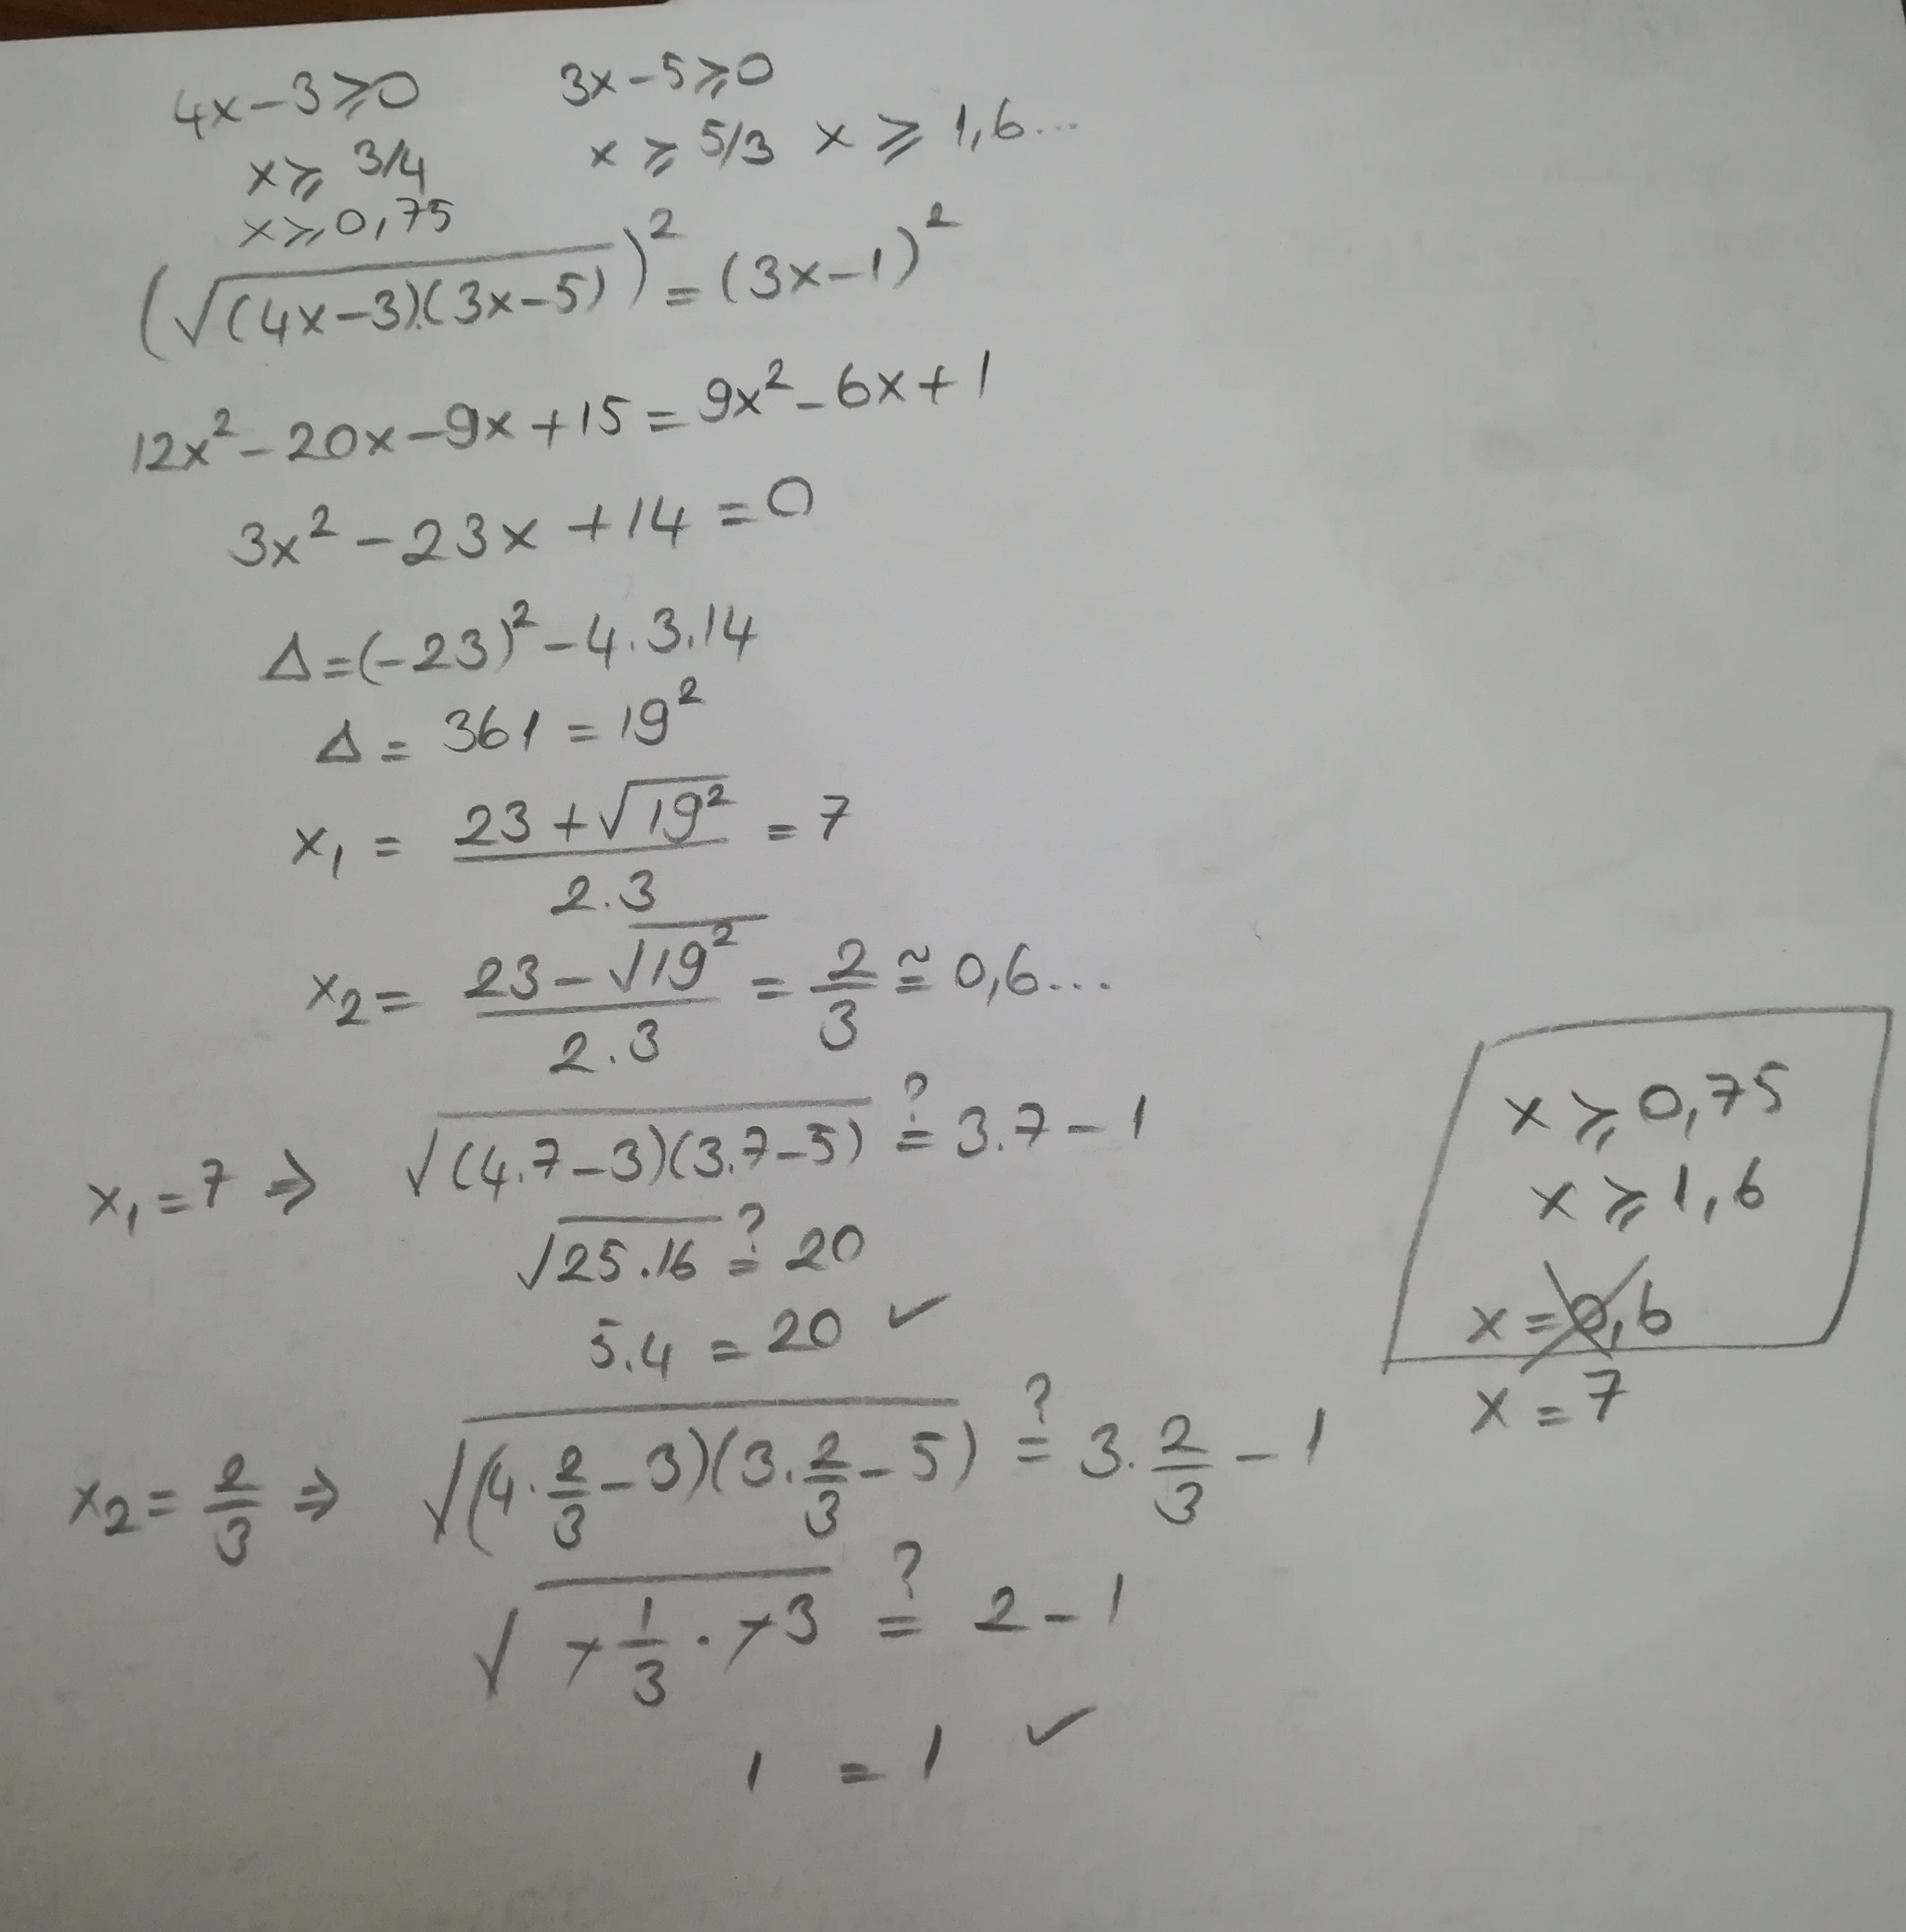 4x-3≥0 3x-5≥0
x≥ 3/4 x ≥ 5/3 x ≥ 1,6...
x≥0,75
(√((4x-3).(3x-5)))² = (3x-1)²
12x²-20x-9x+15=9x²-6x+1
3x²-23x+14=0
Δ=(-23)²-4.3.14
Δ= 361 = 19²
x₁ = (23+√19²)/(2.3) = 7
x₂ = (23-√19²)/(2.3) = 2/3 ≅ 0,6...
x₁=7 ⇒ √((4.7-3)(3.7-5)) ?= 3.7-1
√(25.16) ?= 20
5.4 = 20 ✓
x₂= 2/3 ⇒ √((4.2/3-3)(3.2/3-5)) ?= 3.2/3-1
√(-1/3 . -3) ?= 2-1
1 = 1 ✓
x≥0,75
x≥1,6
x=0,6
x=7